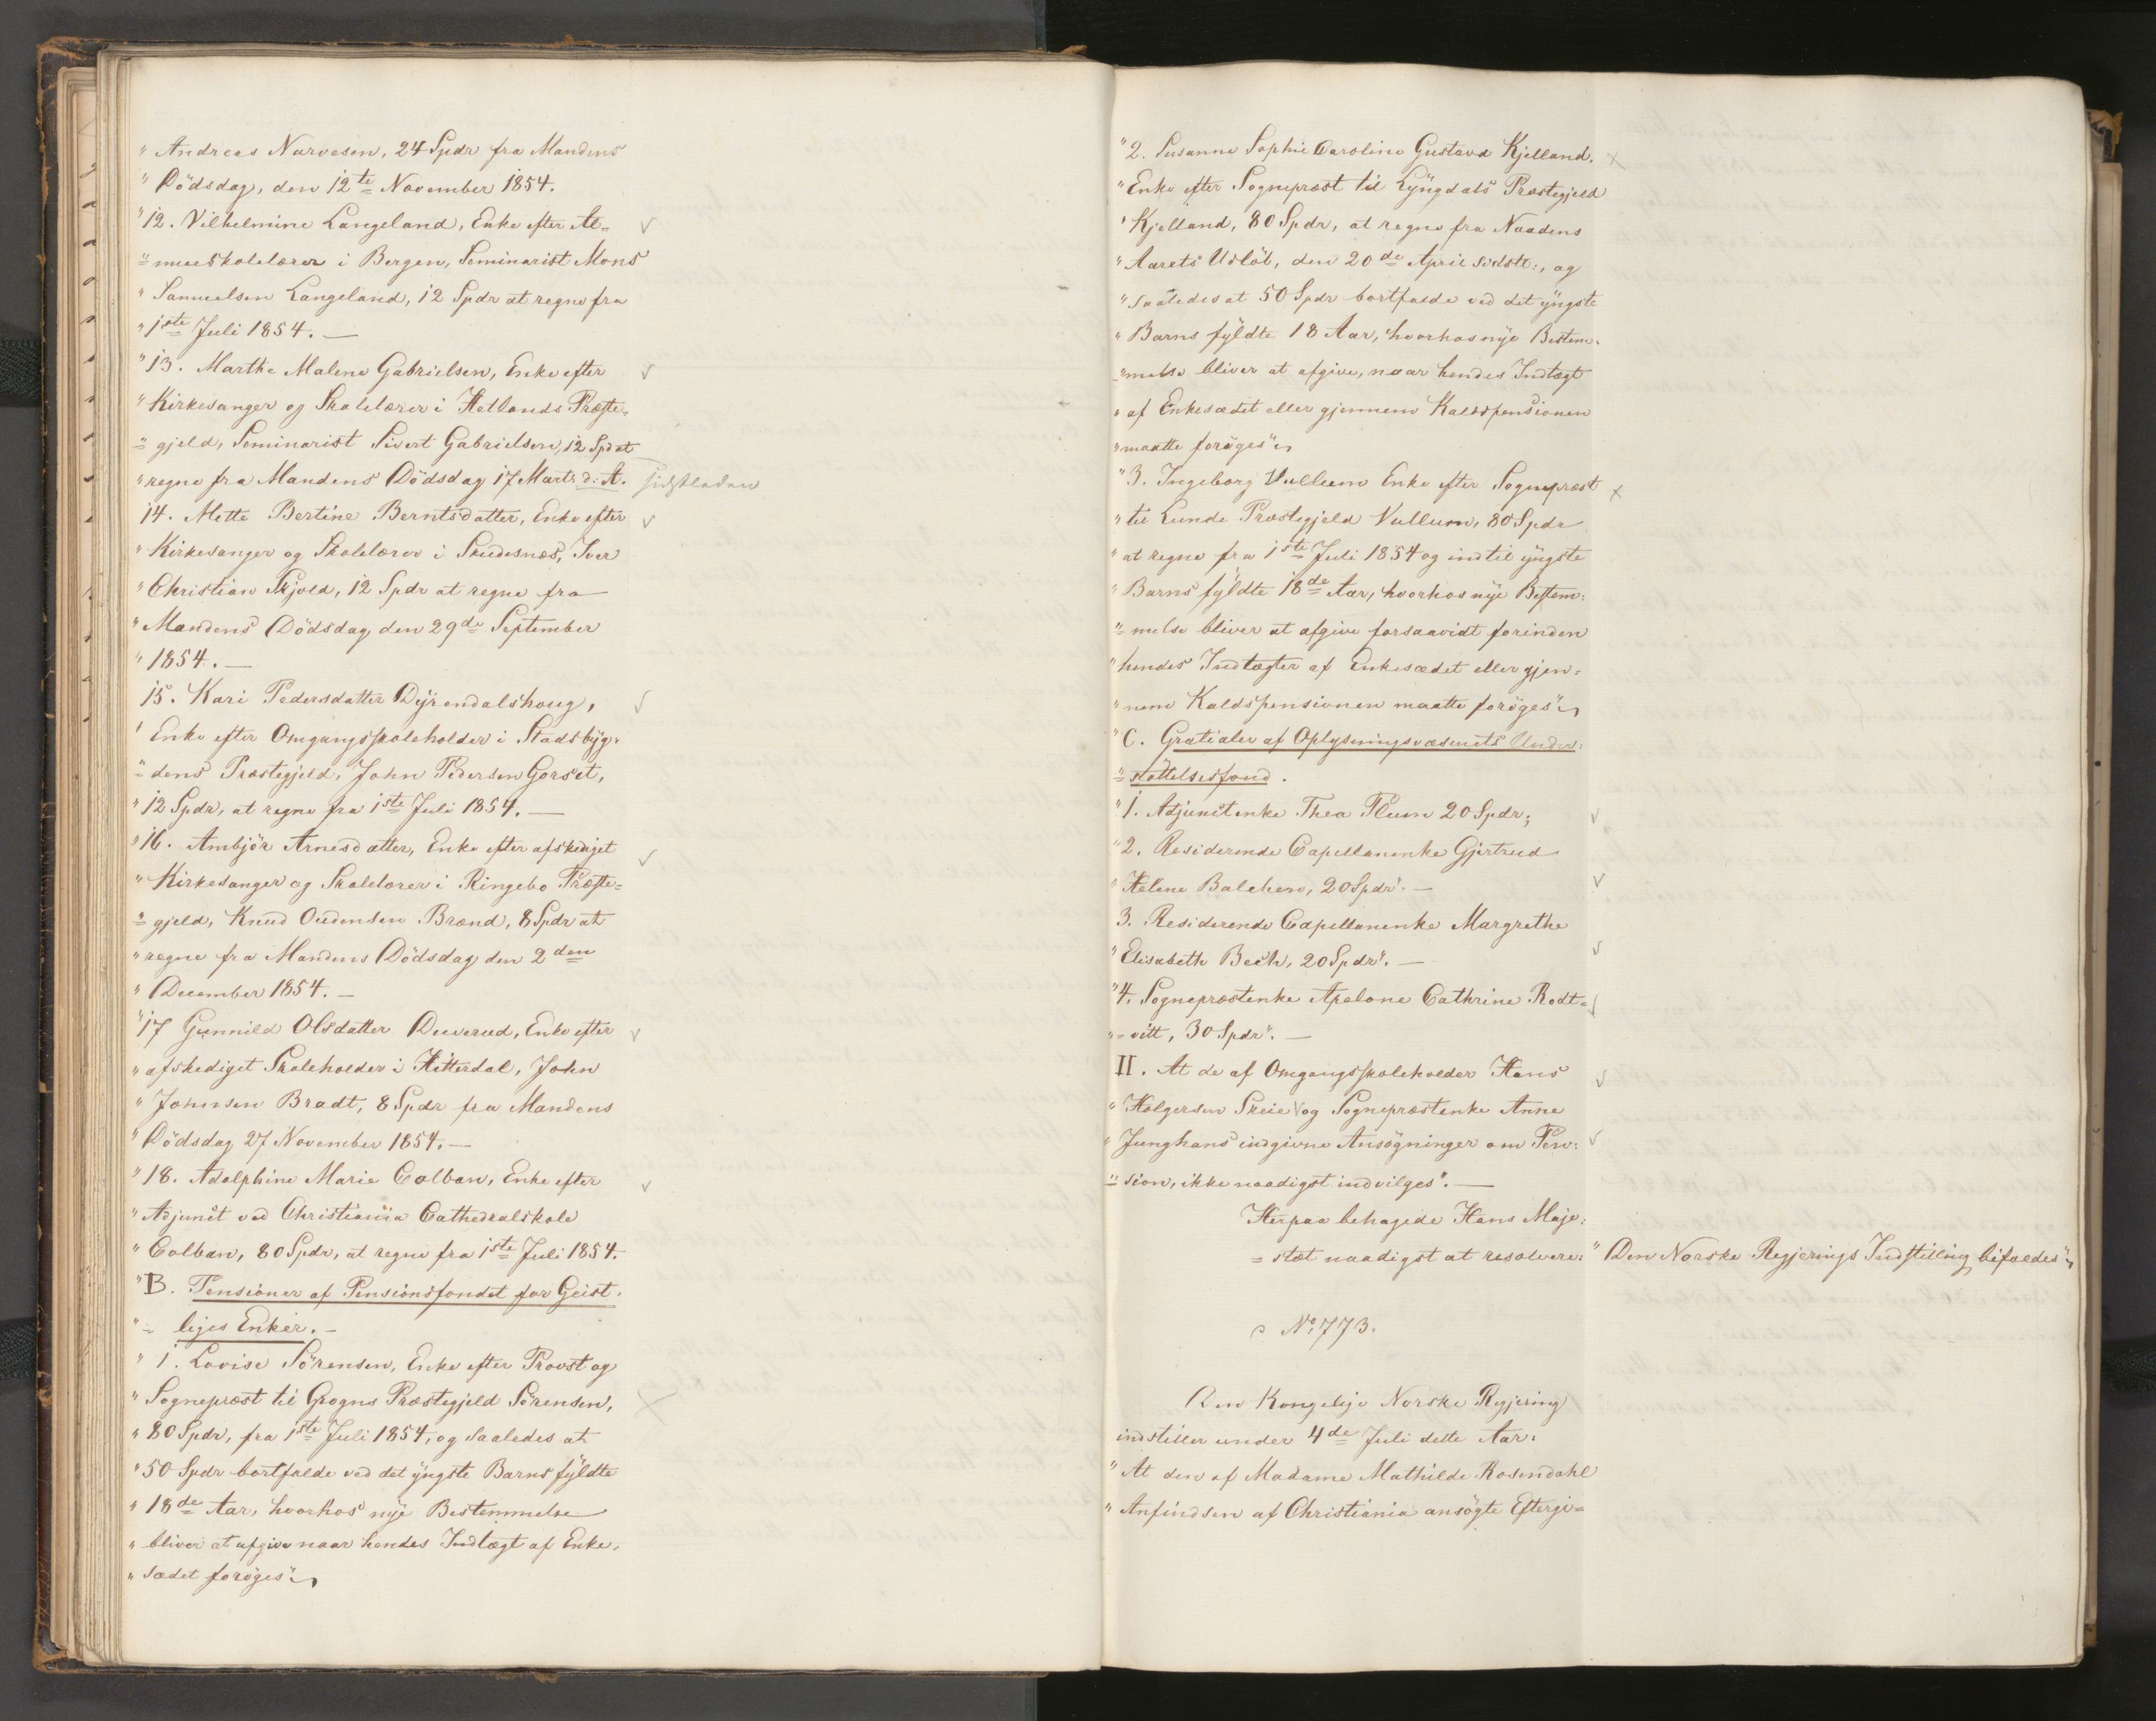 " Andreas Narvesen, 24 Spdr fra Mandens
" Dödsdag, den 12te November 1854.
" 12. Vilhelmine Langeland, Enke efter Al-
"= mueskolelærer i Bergen, Seminarist Mons
" Samuelsen Langeland, 12 Spdr at regne fra
" 1ste Juli 1854. —
" 13. Marthe Malene Gabrielsen, Enke efter
" Kirkesanger og Skolelærer i Hetlands Præste-
"= gjeld, Seminarist Sivert Gabrielsen, 12 Spd at
" regne fra Mandens Dödsdag 17 Marts d: A. sidstleden
14. Mette Bertine Berntsdatter, Enke efter
" Kirkesanger og Skolelærer i Skudesnæs, Iver
" Christian Skjold, 12 Spdr at regne fra
" Mandens Dödsdag den 29de September
" 1854. —
15. Kari Pedersdatter Dyrendalshoug,
" Enke efter Omgangsskoleholder i Stadsbyg-
"= dens Præstegjeld, John Pedersen Gorset,
" 12 Spdr, at regne fra 1ste Juli 1854. —
" 16. Ambjör Arnesdatter, Enke efter afskediget
" Kirkesanger og Skolelærer i Ringebo Præste-
"= gjeld, Knud Oudensen Brænd, 8 Spdr at
" regne fra Mandens Dödsdag den 2den
" December 1854. —
" 17 Gunnild Olsdatter Duverud, Enke efter
" afskediget Skoleholder i Hitterdal, John
" Johnsen Bradt, 8 Spdr fra Mandens
" Dödsdag 27 November 1854. —
" 18. Adolphine Marie Colban, Enke efter
" Adjunct ved Christiania Cathedralskole
" Colban, 80 Spdr, at regne fra 1ste Juli 1854.
" B. Pensioner af Pensionsfondet for Geist-
"= liges Enker. —
" 1. Lovise Sörensen, Enke efter Provst og
" Sognepræst til Grogns Præstegjeld Sörensen,
" 80 Spdr, fra 1ste Juli 1854, og saaledes at
" 50 Spdr bortfalde ved det yngste Barns fyldte
" 18de Aar, hvorhos nye Bestemmelse
" bliver at afgive naar hendes Indtægt af Enke-
" sædet foröges"
" 2. Susanne Sophie Caroline Gustava Kjelland,
" Enke efter Sognepræst til Lyngdals Præstegjeld
" Kjelland, 80 Spdr, at regne fra Naadens
" Aarets Udlöb, den 20de April sidstl:, og
" saaledes at 50 Spdr bortfalde ved det yngste
" Barns fyldte 18 Aar, hvorhos nye Bestem-
"= melse bliver at afgive, naar hendes Indtægt
" af Enkesædet eller gjennem Kaldspensionen
" maatte foröges"
" 3. Ingeborg Vullum Enke efter Sognepræst
" til Lunde Præstegjeld Vullum, 80 Spdr
" at regne fra 1ste Juli 1854 og indtil yngste
" Barns fyldte 18de Aar, hvorhos nye Bestem-
"= melse bliver at afgive forsaavidt forinden
" hendes Indtægter af Enkesædet eller gjen-
" nem Kaldspensionen maatte foröges"
" C. Gratialer af Oplysningsvæsenets Under-
"= stöttelsesfond.
" 1. Adjunctenke Thea Flum 20 Spdr;
" 2. Residerende Capellanenke Gjertrud
" Helene Balchen, 20 Spdr". —
3. Residerende Capellanenke Margrethe
" Elisabeth Bech, 20 Spdr". —
" 4. Sognepræstenke Apelone Cathrine Rodt-
"= vitt, 30 Spdr". —
II. At de af Omgangsskoleholder Hans
" Holgersen Skeie og Sognepræstenke Anne
" Junghans indgivne Ansögninger om Pen-
"= sion, ikke naadigst indvilges". —
Herpaa behagede Hans Maje-
= stæt naadigst at resolvere: "Den Norske Regjerings Indstilling bifaldes"
No 773.
Den Kongelige Norske Regjering
indstiller under 4de Juli dette Aar:
" At den af Madame Mathilde Rosendahl
" Anfindsen af Christiania ansögte Eftergi-